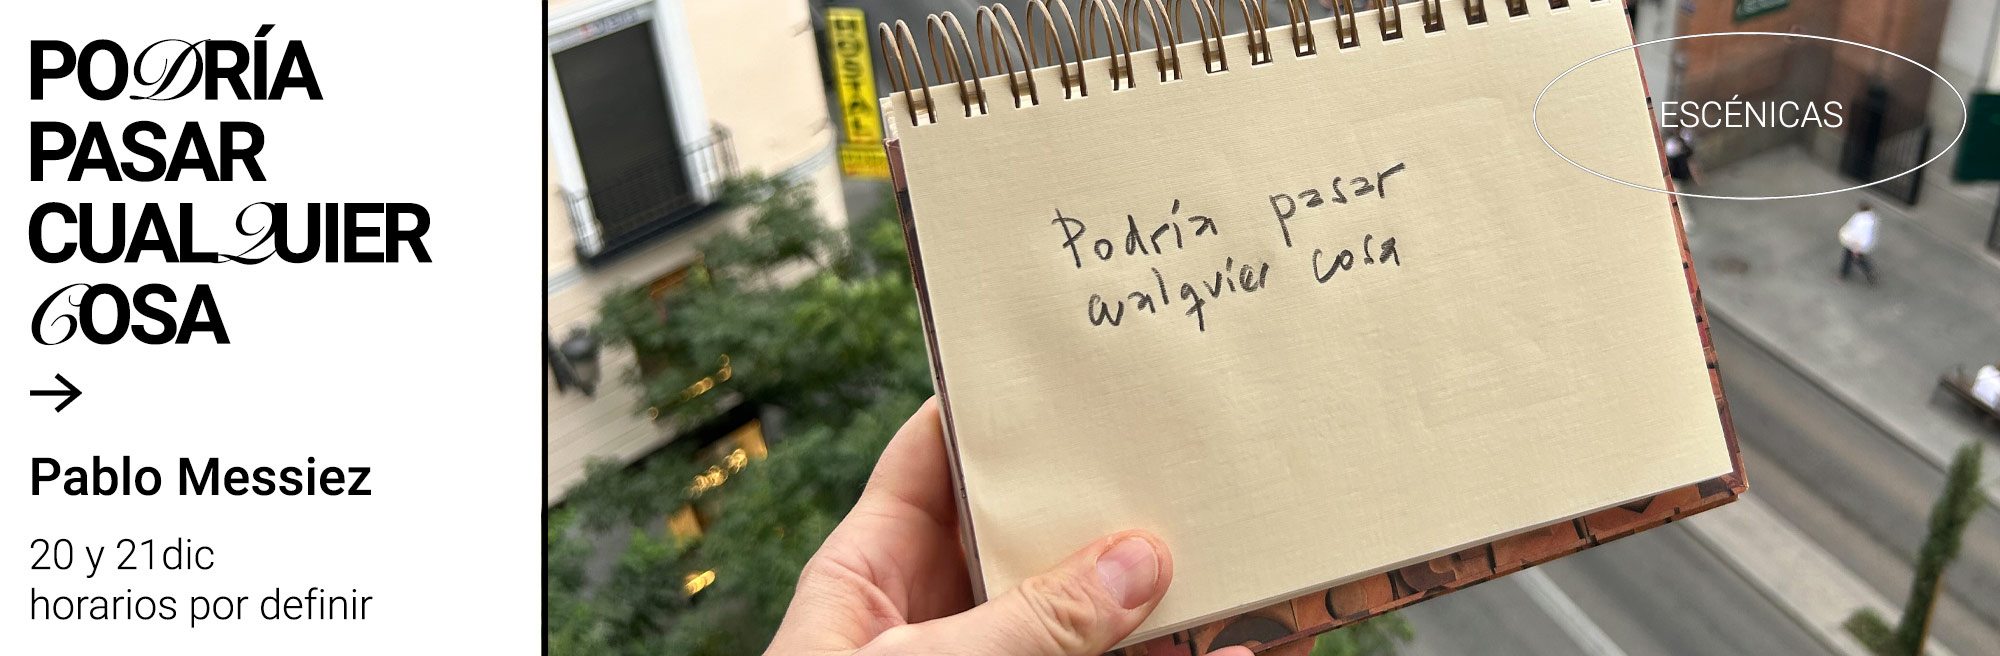 PODRÍA
PASAR
CUALQUIER
COSA
→
Pablo Messiez
20 y 21dic
horarios por definir
HOSTAL
Podría pasar
cualquier cosa
ESCÉNICAS